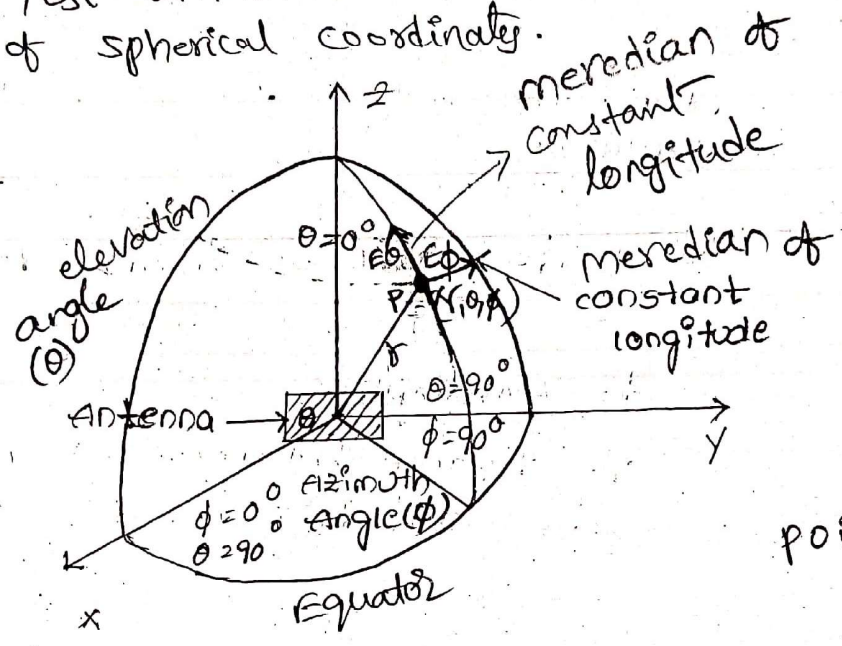 of spherical coordinates.
meredian of
constant
longitude
Z
θ=0°
elevation
angle
(θ)
Eθ
Eϕ
meredian of
constant
longitude
P=(r,θ,ϕ)
r
θ=90°
ϕ=90°
Antenna
θ
Y
ϕ=0°
θ=90°
Azimuth
Angle(ϕ)
poi
Equator
X